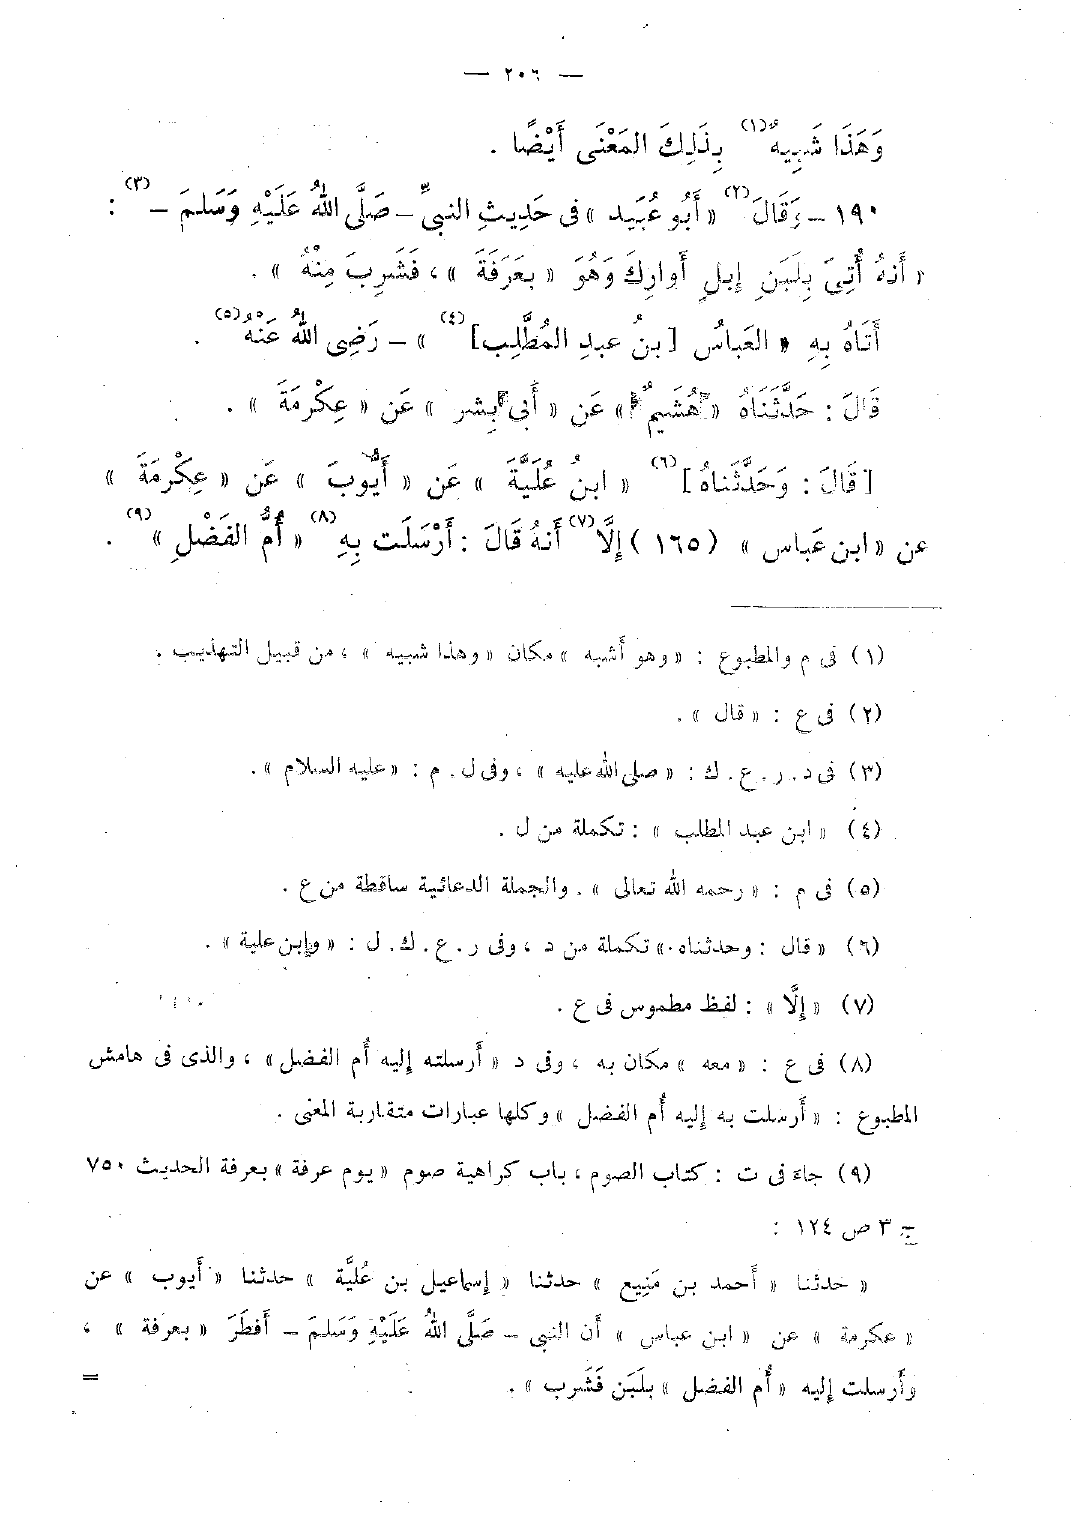 — ٢٠٦ —
وَهَذَا شَبِيهٌ(١) بِذَلِكَ المَعْنَى أَيْضًا .
١٩٠ – وَقَالَ(٢) « أَبُو عُبَيد » فى حَدِيثِ النبىِّ – صَلَّى اللهُ عَلَيْهِ وَسَلمَ –(٣) :
« أَنهُ أُتِىَ بِلَبَنِ إبِلٍ أَوارِكَ وَهُوَ « بعَرَفَةَ » ، فَشَرِبَ مِنْهُ » .
أَتَاهُ بِهِ « العَباسُ [ بنُ عبدِ المُطَّلِب ](٤) » – رَضِى اللهُ عَنْهُ(٥) .
قَالَ : حَدَّثَنَاهُ « هُشَيمٌ » عَن « أَبى بِشر » عَن « عِكْرمَةَ » .
[ قَالَ : وَحَدَّثَناهُ ](٦) « ابنُ عُلَيَّةَ » عَن « أَيُّوبَ » عَن « عِكْرِمَةَ »
عن « ابن عَباس » ( ١٦٥ ) إلَّا(٧) أَنهُ قَالَ : أَرْسَلَت بِهِ(٨) « أُمُّ الفَضْلِ »(٩) .
(١) فى م والمطبوع : « وهو أَشبه » مكان « وهذا شبيه » ، من قبيل التهذيب .
(٢) فى ع : « قال » .
(٣) فى د . ر . ع . ك : « صلى الله عليه » ، وفى ل . م : « عليه السلام » .
(٤) « ابن عبد المطلب » : تكملة من ل .
(٥) فى م : « رحمه الله تعالى » . والجملة الدعائية ساقطة من ع .
(٦) « قال : وحدثناه » تكملة من د ، وفى ر . ع . ك . ل : « وابن علية » .
(٧) « إلَّا » : لفظ مطموس فى ع .
(٨) فى ع : « معه » مكان به ، وفى د « أَرسلته إليه أُم الفضل » ، والذى فى هامش
المطبوع : « أَرسلت به إليه أُم الفضل » وكلها عبارات متقاربة المعنى .
(٩) جاءَ فى ت : كتاب الصوم ، باب كراهية صوم « يوم عرفة » بعرفة الحديث ٧٥٠
ج ٣ ص ١٢٤ :
« حدثنا « أَحمد بن مَنِيع » حدثنا « إسماعيل بن عُليَّة » حدثنا « أَيوب » عن
« عكرمة » عن « ابن عباس » أَن النبى – صَلَّى اللهُ عَلَيْهِ وَسَلمَ – أَفطَرَ « بعرفة » ،
وأَرسلت إليه « أُم الفضل » بلَبَن فَشَرب » .
=